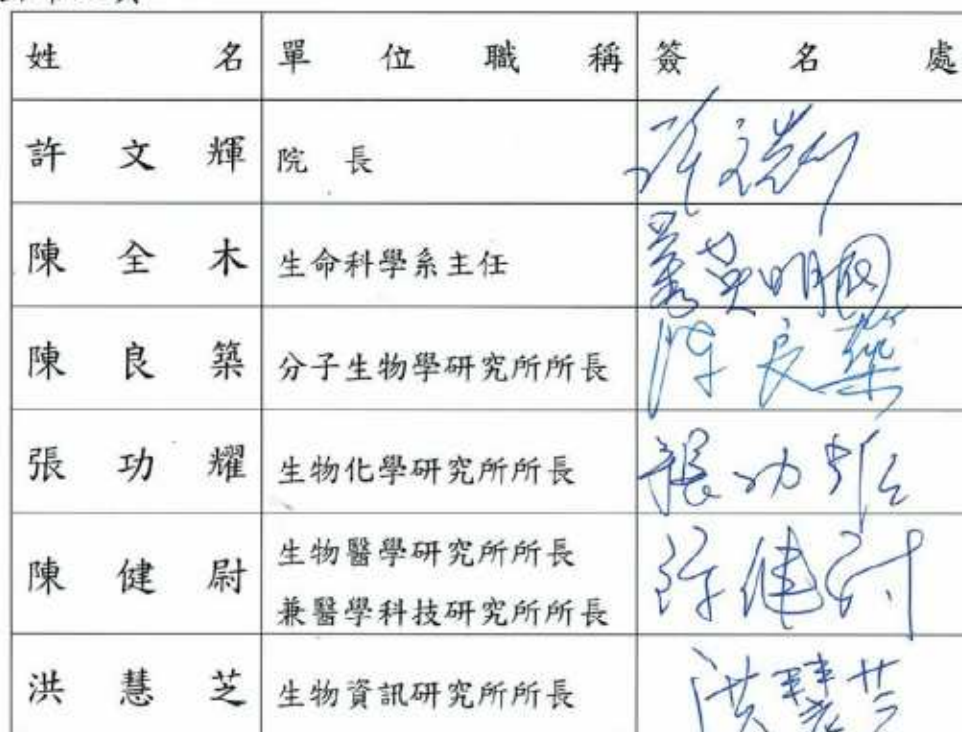 姓名 單位職稱 簽名處
許文輝 院長 許文輝
陳全木 生命科學系主任
陳良築 分子生物學研究所所長 陳良築
張功耀 生物化學研究所所長 張功耀
陳健尉 生物醫學研究所所長
兼醫學科技研究所所長 陳健尉
洪慧芝 生物資訊研究所所長 洪慧芝